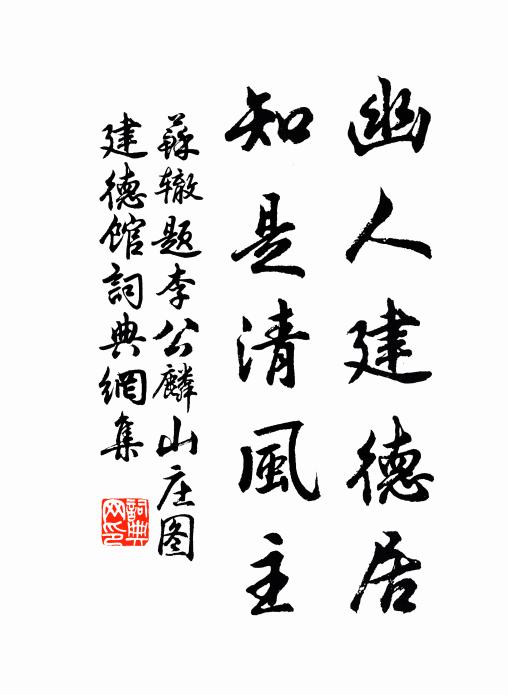 幽人建德居
知是清風主
蘇辙題李公麟山庄图
建德馆詞典網集
詞典網印